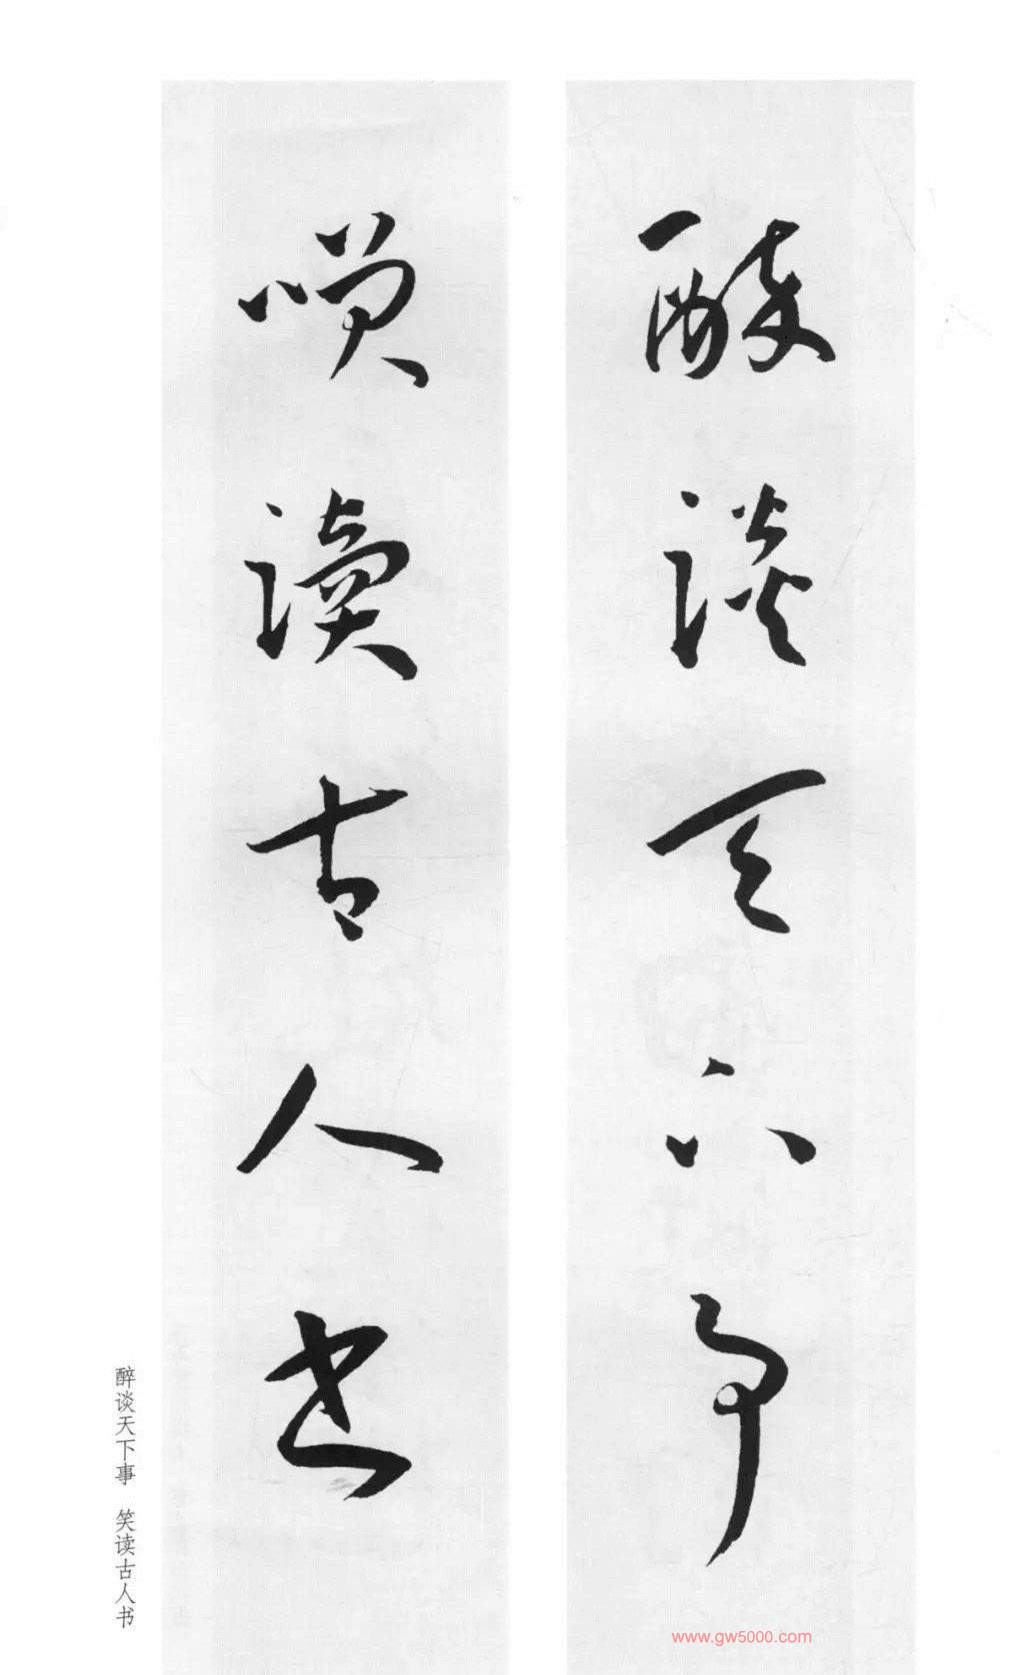 醉谈天下事
咲读古人书
醉谈天下事 笑读古人书
www.gw5000.com